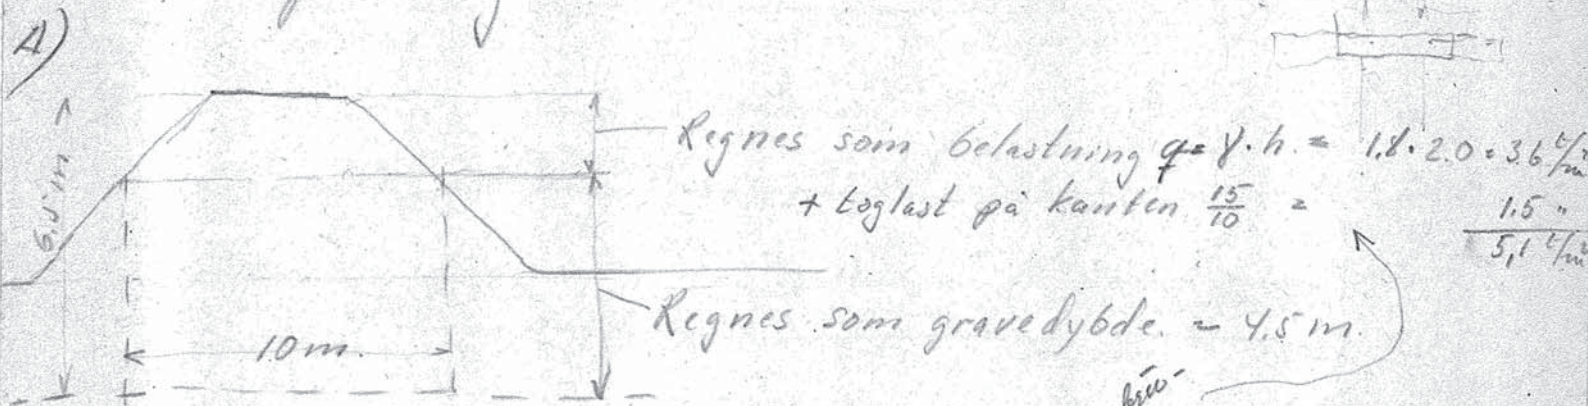 A)
Regnes som belastning q = γ · h. = 1.8 · 2.0 = 3.6 t/m²
+ toglast på kanten 15/10 = 1.5 "
5,1 t/m²
6.5 m
Regnes som gravedybde. = 4.5 m.
10 m.